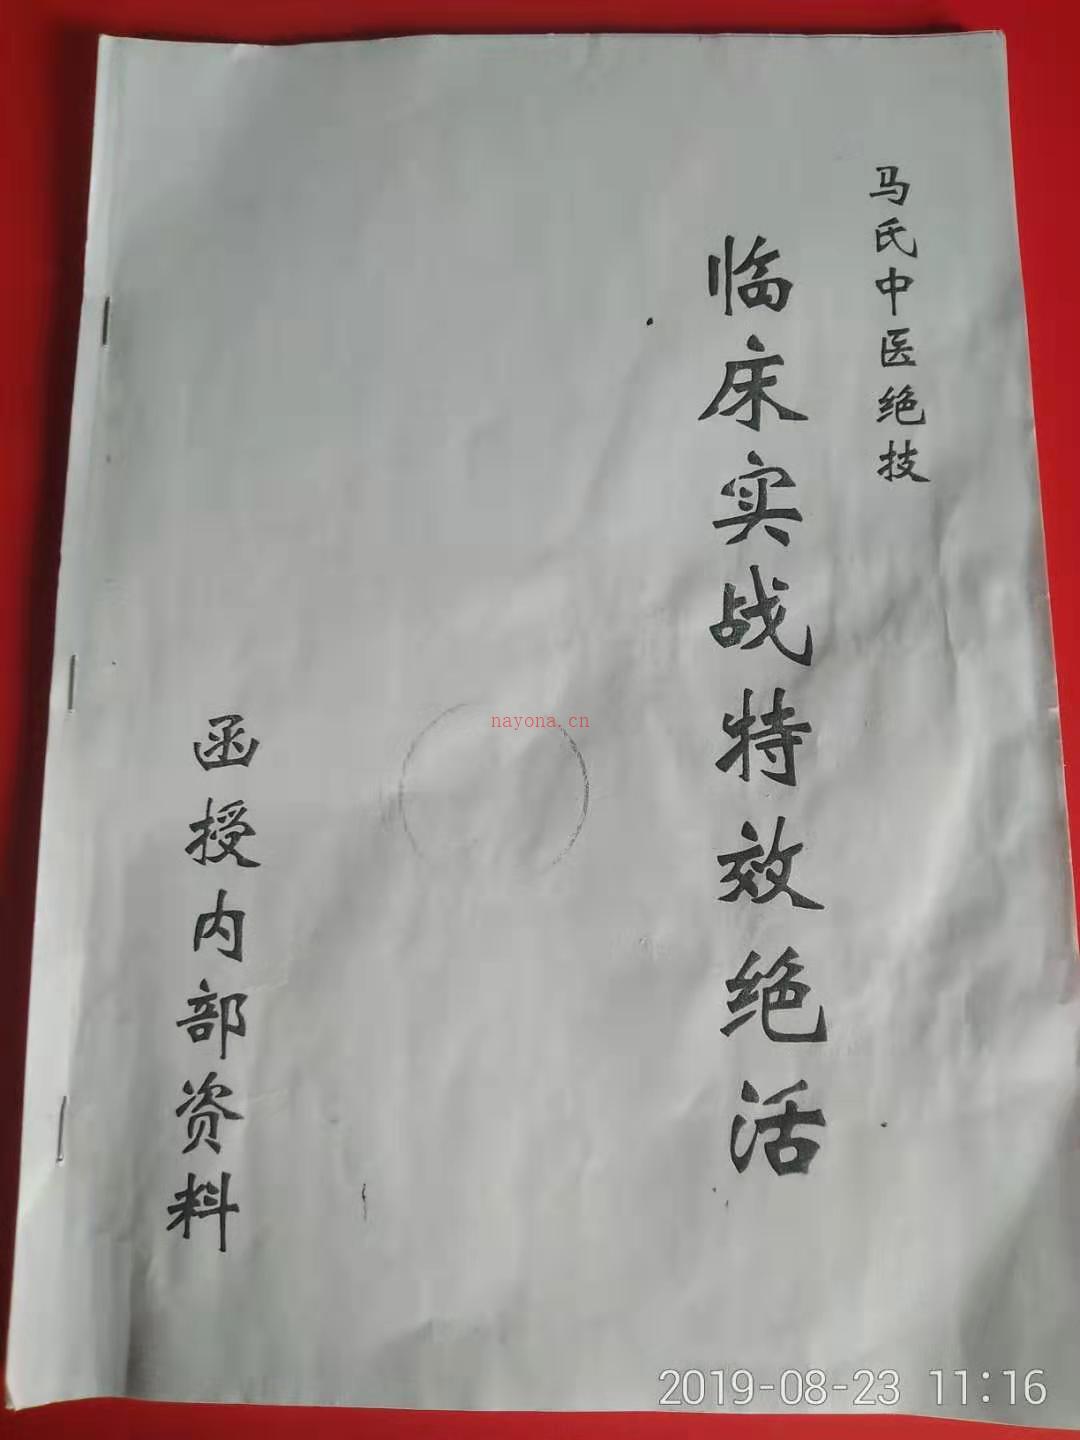 马氏中医绝技
临床实战特效绝活
函授内部资料
nayona.cn
2019-08-23 11:16